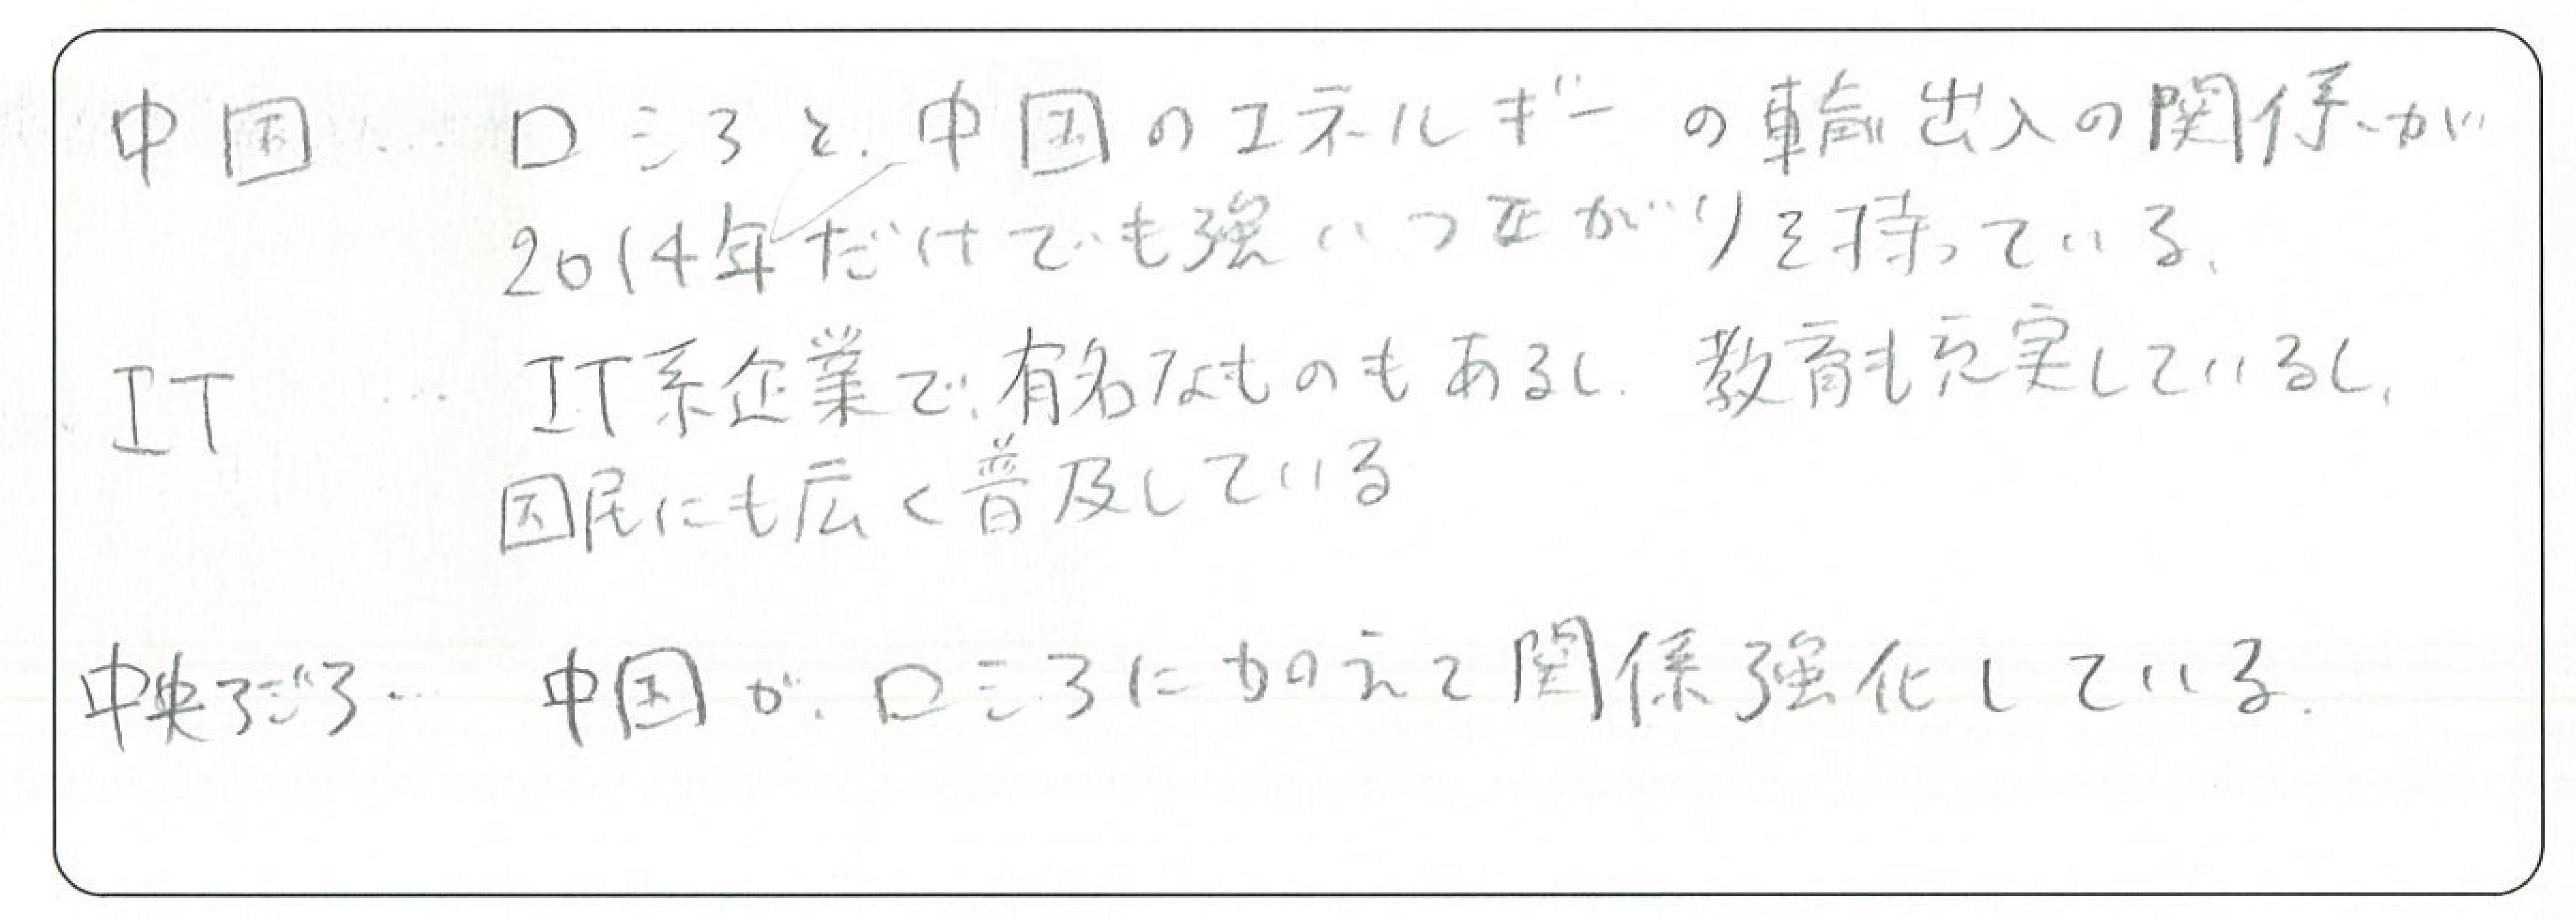 中国 … ロシアと、中国のエネルギーの輸出入の関係が
2014年だけでも強いつながりを持っている、
IT … IT系企業で、有名なものもあるし、教育も充実しているし、
国民にも広く普及している
中央アジア … 中国が、ロシアに加えて関係強化している、